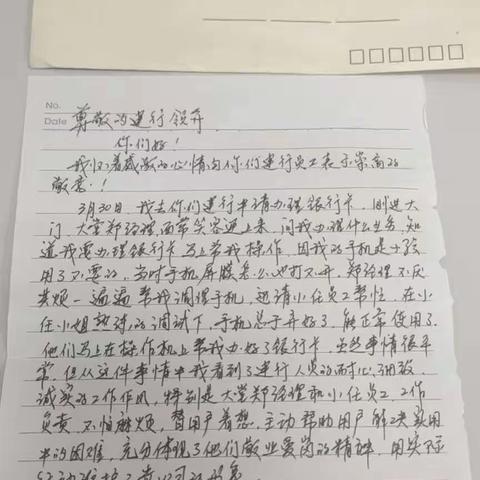 No.
Date
尊敬的建行领导
你们好！
我怀着感激的心情向你们建行员工表示崇高的
敬意！
3月30日，我去你们建行申请办理银行卡，刚进大
门，大堂郑经理面带笑容迎上来，问我办理什么业务，知
道我要办理银行卡，马上带我操作，因我的手机是女孩
用了不要的，当时手机屏膜怎么也打不开，郑经理不厌
其烦一遍遍帮我调慢手机，还请小任员工帮忙，在小
任小姐热诚的调试下，手机总于弄好了，能正常使用了，
他们马上在操作机上帮我办好了银行卡，虽然事情很平
常，但从这件事情中我看到了建行人员的耐心、细致、
诚实的工作作风，特别是大堂郑经理和小任员工，工作
负责，不怕麻烦，替用户着想，主动帮助用户解决实用
中的困难，充分体现了他们敬业爱岗的精神，用实际
行动维护了贵公司的形象